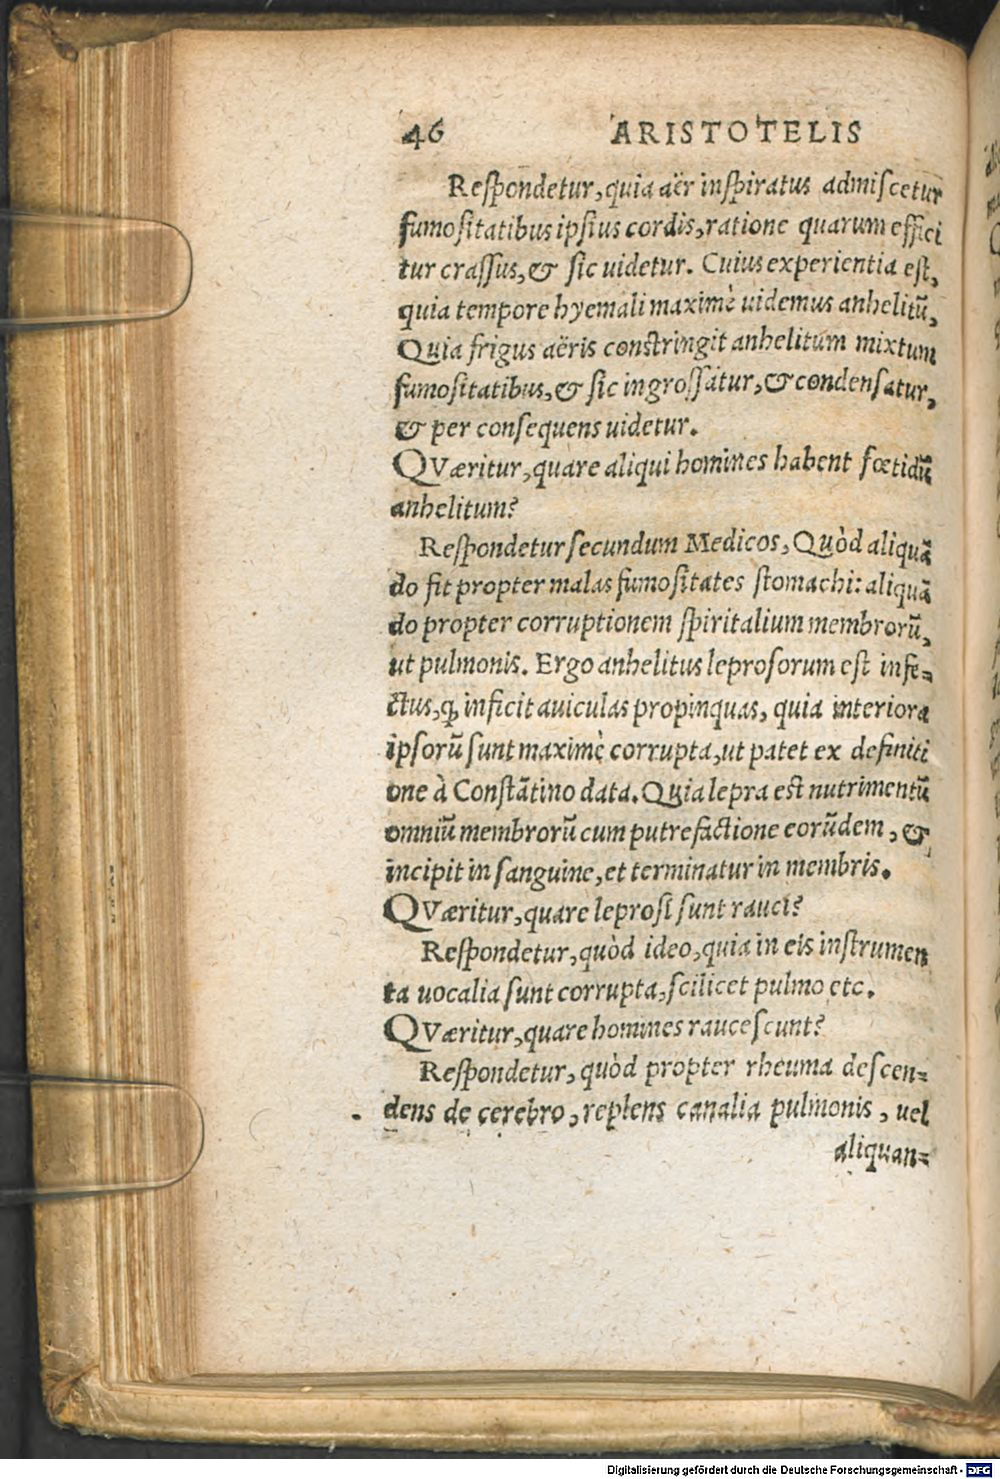 46 ARISTOTELIS
Reſpondetur, quia aër inſpiratus admiſcetur
fumoſitatibus ipſius cordis, ratione quarum effici
tur craſſus, & ſic uidetur. Cuius experientia eſt,
quia tempore hyemali maximè uidemus anhelitũ,
Quia frigus aëris conſtringit anhelitum mixtum
fumoſitatibus, & ſic ingroſſatur, & condenſatur,
& per conſequens uidetur.
QVæritur, quare aliqui homines habent fœtidũ
anhelitum?
Reſpondetur ſecundum Medicos, Quòd aliquã
do fit propter malas fumoſitates ſtomachi: aliquã
do propter corruptionem ſpiritalium membrorũ,
ut pulmonis. Ergo anhelitus leproſorum eſt infe-
ctus, ꝗ inficit auiculas propinquas, quia interiora
ipſorũ ſunt maximè corrupta, ut patet ex definiti
one à Conſtãtino data. Quia lepra eſt nutrimentũ
omniũ membrorũ cum putrefactione eorũdem, &
incipit in ſanguine, et terminatur in membris.
QVæritur, quare leproſi ſunt rauci?
Reſpondetur, quòd ideo, quia in eis inſtrumen
ta uocalia ſunt corrupta, ſcilicet pulmo etc.
QVæritur, quare homines rauceſcunt?
Reſpondetur, quòd propter rheuma deſcen-
dens de cerebro, replens canalia pulmonis, uel
aliquan-
Digitalisierung gefördert durch die Deutsche Forschungsgemeinschaft - DFG